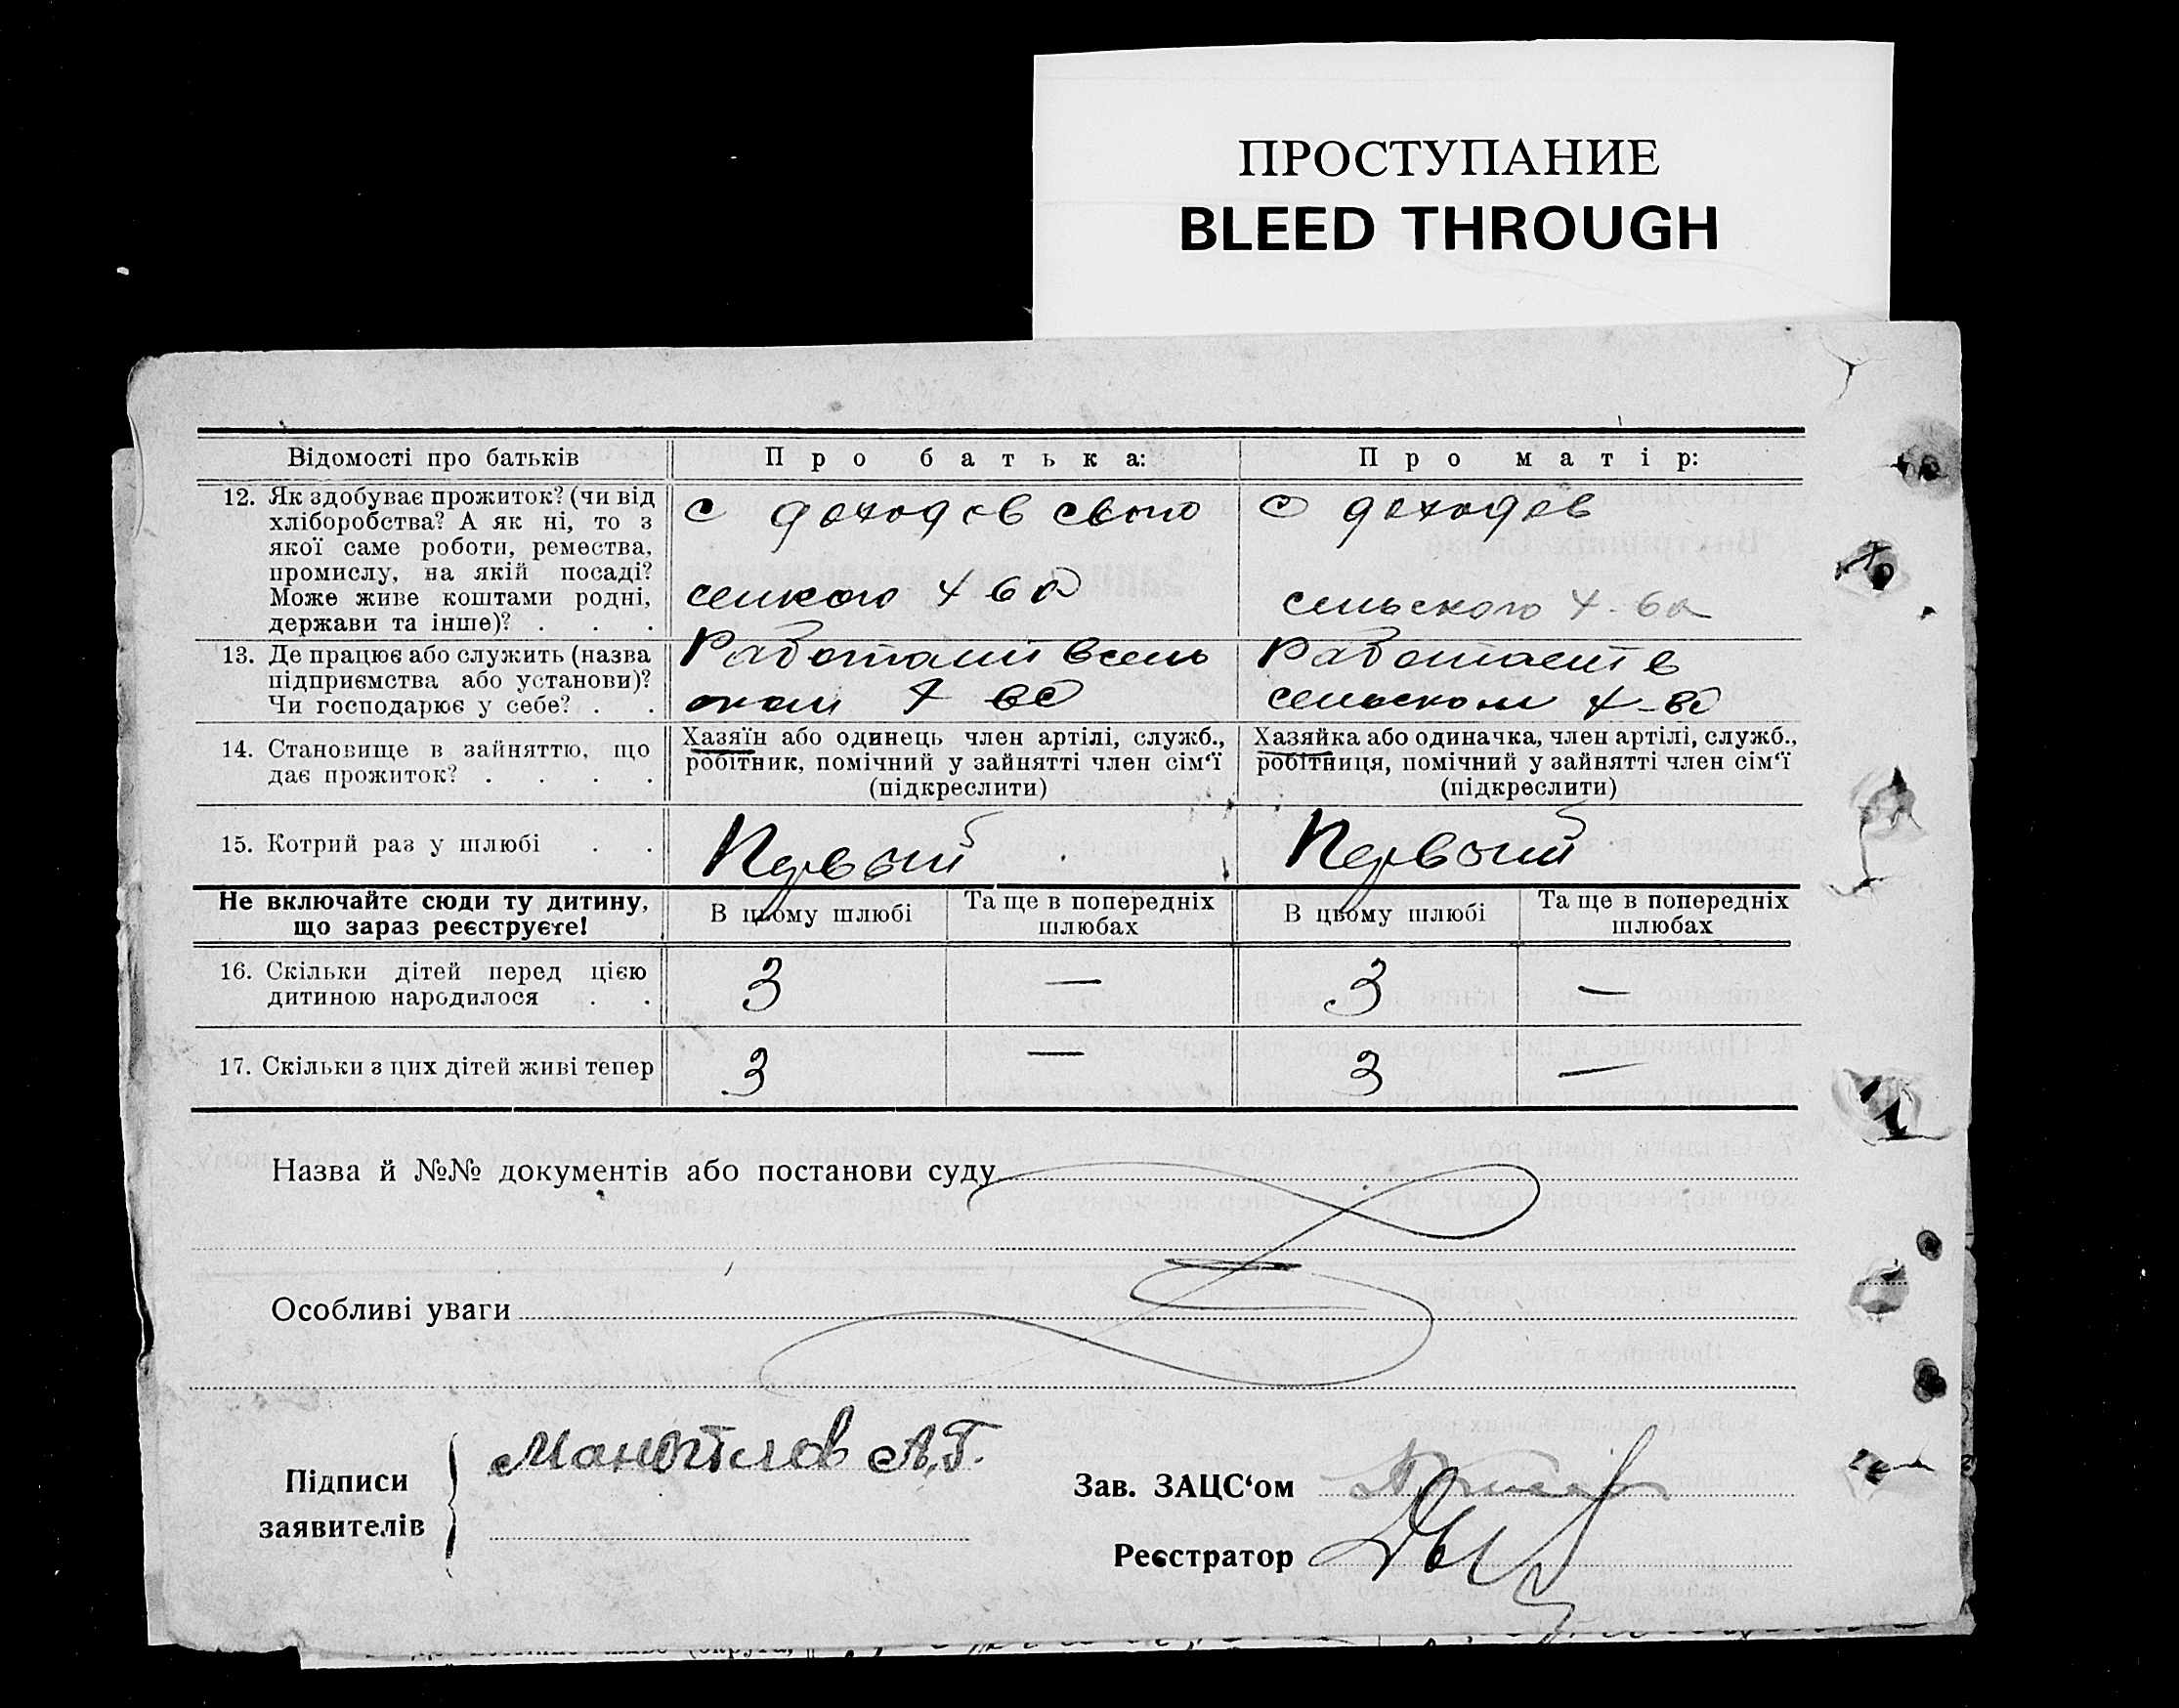 ПРОСТУПАНИЕ
BLEED THROUGH
Відомості про батьків
Про батька:
Про матір:
12. Як здобуває прожиток? (чи від
хліборобства? А як ні, то з
якої саме роботи, ремества,
промислу, на якій посаді?
Може живе коштами родні,
держави та інше)? . . .
с доходов
с доходов
сельского х-ва
13. Де працює або служить (назва
підприємства або установи)?
Чи господарює у себе? . .
Работает в
Работает в
сельском х-ве
14. Становище в зайняттю, що
дає прожиток? . . . .
Хазяїн або одинець член артілі, служб.,
робітник, помічний у зайнятті член сім‘ї
(підкреслити)
Хазяйка або одиначка, член артілі, служб.,
робітниця, помічний у зайнятті член сім‘ї
(підкреслити)
15. Котрий раз у шлюбі . .
Первый
Первый
Не включайте сюди ту дитину,
що зараз реєструєте!
В цьому шлюбі
Та ще в попередніх
шлюбах
В цьому шлюбі
Та ще в попередніх
шлюбах
16. Скільки дітей перед цією
дитиною народилося . .
3
—
3
—
17. Скільки з цих дітей живі тепер
3
—
3
—
Назва й №№ документів або постанови суду
Особливі уваги
Підписи
заявителів
Манойлов А.Г.
Зав. ЗАЦС‘ом
Реєстратор